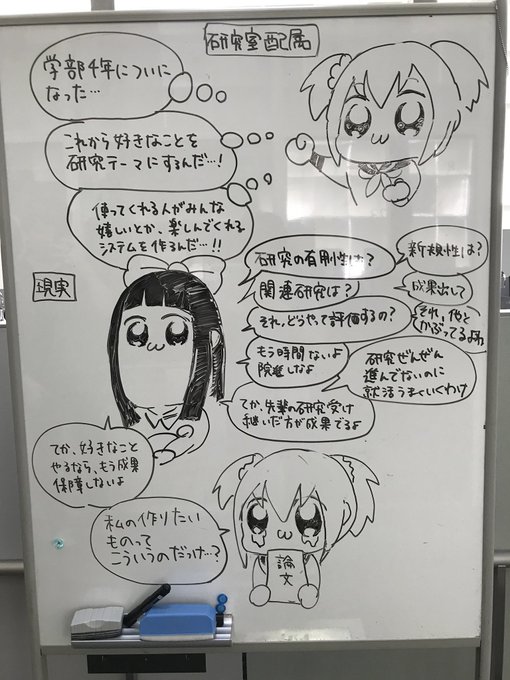 研究室配属
学部4年についに
なった…
これから好きなことを
研究テーマにするんだ…!
使ってくれる人がみんな
嬉しいとか、楽しんでくれる
システムを作るんだ…!!
現実
研究の有用性は?
新規性は?
関連研究は?
成果出して
それ、どうやって評価するの?
それ、他と
かぶってるよね
もう時間ないよ
院進しなよ
研究ぜんぜん
進んでないのに
就活うまくいくわけ
てか、先輩の研究受け
継いだ方が成果でるよ
てか、好きなこと
やるなら、もう成果
保障しないよ
私の作りたい
ものって
こういうのだっけ…?
論文